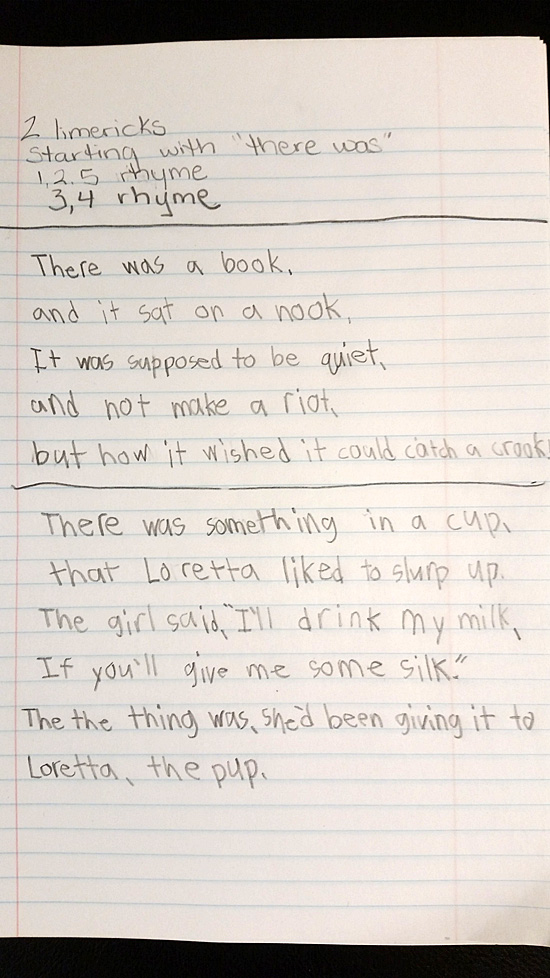 2 limericks
Starting with "there was"
1, 2. 5 rhyme
3,4 rhyme
There was a book,
and it sat on a nook,
It was supposed to be quiet,
and not make a riot,
but how it wished it could catch a crook!
There was something in a cup,
that Loretta liked to slurp up.
The girl said, "I'll drink my milk,
If you'll give me some silk."
The the thing was, she'd been giving it to
Loretta, the pup.